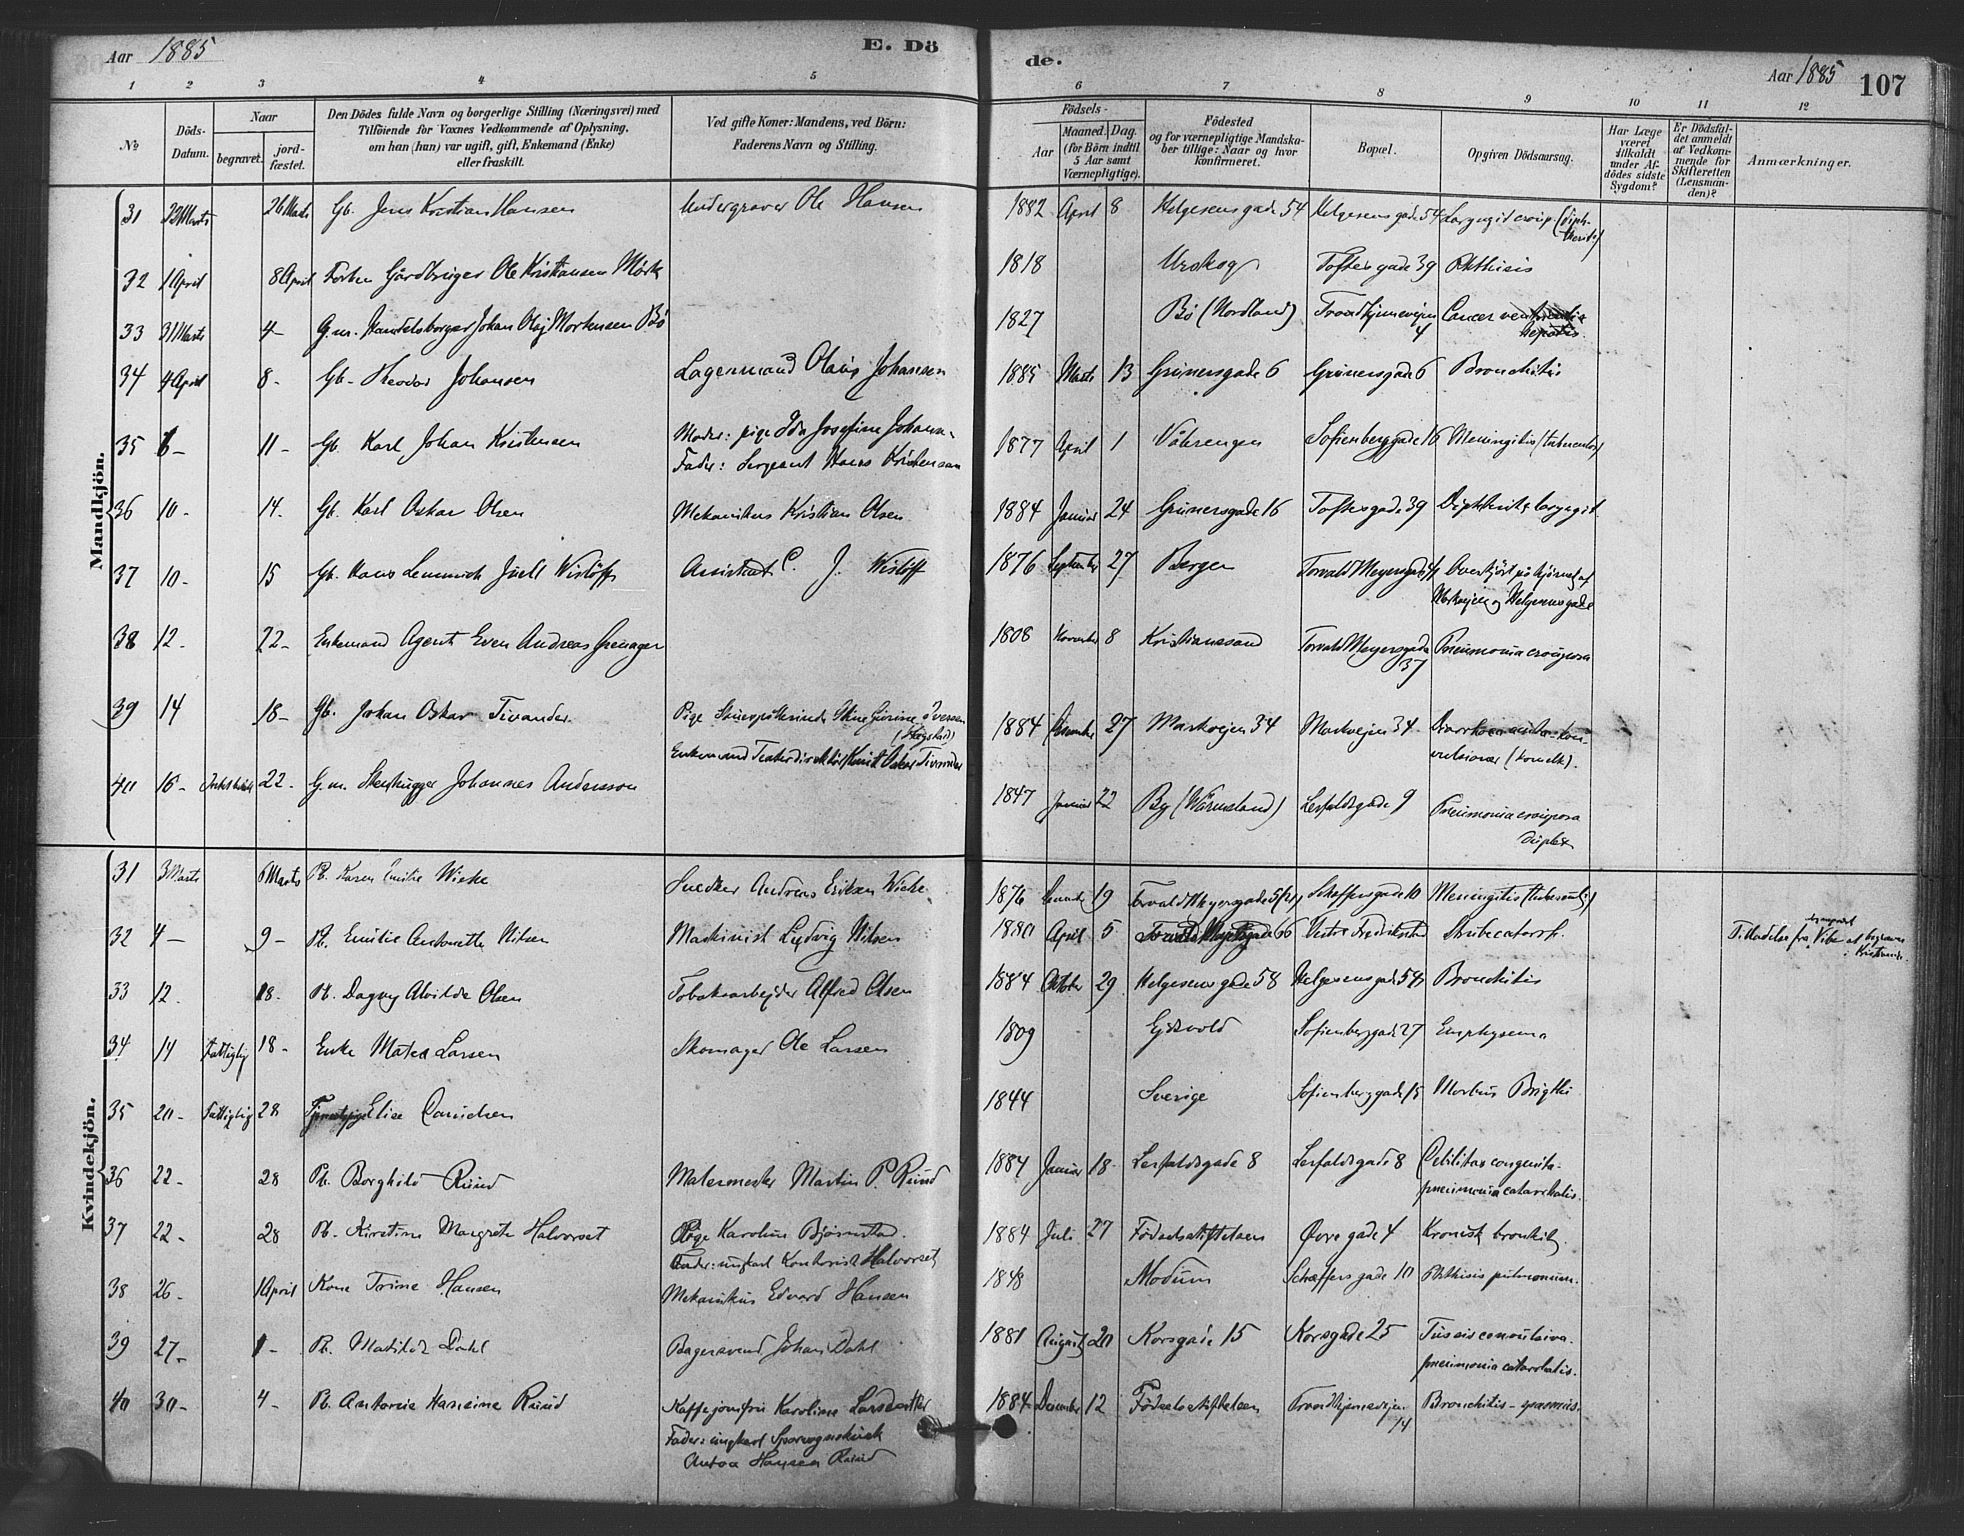 Aar 1885 E. Dö
de. Aar 1885 107
1 2 3 4 5 6 7 8 9 10 11 12
№
Döds-Datum.
Naar
begravet.
jordfæstet.
Den Dödes fulde Navn og borgerlige Stilling (Næringsvei) med
Tilföiende for Voxnes Vedkommende af Oplysning,
om han (hun) var ugift, gift, Enkemand (Enke)
eller fraskilt.
Ved gifte Koner: Mandens, ved Börn:
Faderens Navn og Stilling.
Födsels-
Aar
Maaned. Dag.
(for Börn indtil
5 Aar samt
Værnepligtige).
Födested
og for værnepligtige Mandskaber
tillige: Naar og hvor
konfirmeret.
Bopæl.
Opgiven Dödsaarsag.
Har Læge
været
tilkaldt
under Afdödes
sidste
Sygdom?
Er Dödsfaldet
anmeldt
af Vedkommende
for
Skifteretten
(Lensmanden)?
Anmærkninger.
Mandkjön.
31 23 Marts 26 Marts Gb. Jens Kristian Hansen Undergraver Ole Hansen 1882 April 8 Helgesensgade 54 Helgesensgade 54
32 1 April 8 April Gårdbruger Ole Kristiansen 1818 Urskog Toftesgade 39 Phthisis
33 31 Marts 4 - G.m. Handelsborger Johan Olaj Mortensen Bö 1827 Bö (Nordland) Trondhjemsvejen 4 Cancer hepatis
34 4 April 8 - Gb. Theodor Johansen Lagermand Olavs Johansen 1885 Marts 13 Grünersgade 6 Grünersgade 6 Bronchitis
35 6 - 11 - Gb. Karl Johan Kristensen Moder: pige Ida Josefine Johann.
Fader: Sergeant Hans Kristensen 1877 April 1 Vålerengen Sofienberggade 16 Meningitis
36 10 - 14. Gb. Karl Oskar Olsen Mekanikus Kristian Olsen 1884 Januar 24 Grünersgade 16 Toftesgade 39
37 10 - 15 Gb. Hans Lemmich Juell Wislöff Assistent C. J. Wislöff 1876 September 27 Bergen Torvald Meyersgade Overkjört på hjörnet af
Markvejen og Helgesensgade
38 12. 22 - Enkemand Agent Even Andreas Grenager 1808 November 8 Kristianssand Torvald Meyersgade 37 Pneumonia crouposa
39 14 18 - Gb. Johan Oskar Tivander Pige Skuespillerinde Iversen
Enkemand Teaterdirektör Knut Oskar Tivander 1884 27 Markvejen 34 Markvejen 34
40 16 - 22. G.m. Stenhugger Johannes Andersson 1847 Januar 22 By (Värmsland) Lerfaldsgade 9 Pneumonia crouposa
duplex
Kvindekjön.
31 3 Marts 6 Marts Pb. Karen Emilie Wieke Snedker Andreas Eriksen Wieke 1876 19 Torvald Meyersgade Schæffersgade 10 Meningitis
32 4 - 9 - Pb. Emilie Antonette Nilsen Maskinist Ludvig Nilsen 1880 April 5 Torvald Meyersgade 66 Vestre Fredrikstad Strubecatarrh. Tilladelse fra Vibe at begraves
33 12. 18. Pb. Dagny Alvilde Olsen Tobaksarbejder Alfred Olsen 1884 Oktober 29 Helgesensgade 58 Helgesensgade 54 Bronchitis
34 14 Fattiglig 18 - Enke Mathea Larsen Skomager Ole Larsen 1809 Ejdsvold Sofienberggade 27 Emphysema
35 20 - Fattiglig 28 Tjenestepige Elise Danielsen 1844 Sverige Sofienberggade 15 Morbus Brigthi
36 22 - 28 Pb. Borghild Ruud Malermester Martin P. Ruud 1884 Januar 18 Lerfaldsgade 8 Lerfaldsgade 8 Debilitas congenita.
pneumonia catarrhalis.
37 22 - 28 Pb. Kirstine Margrete Halvorset Pige Karoline Bjørnstad.
Fader: ungkarl Kontorist Halvorset 1884 Juli 27 Födselsstiftelsen Øvregade 4 Kronisk bronkit
38 26 - 1 April Kone Trine Hansen Mekanikus Edvard Hansen 1848 Modum Schæffersgade 10 Phthisis pulmonum.
39 27 - 1 - Pb. Matilde Dahl Bagersvend Johan Dahl 1881 August 20 Korsgade 15 Korsgade 25 Tussis convulsiva.
pneumonia catarrhalis.
40 30 - 4 - Pb. Antonie Hansine Ruud Kaffejomfru Karoline Larsdatter
Fader: ungkarl Sporvognskusk
Anton Hansen Ruud 1884 December 12 Födselsstiftelsen Trondhjemsvejen 14 Bronchitis